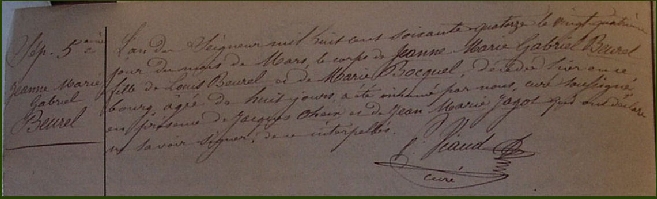 Sép. 5ème
Jeanne Marie
Gabriel
Beurel
L'an du Seigneur mil huit cent soixante quatorze le vingt quatrième
jour du mois de Mars, le corps de Jeanne Marie Gabriel Beurel
fille de Louis Beurel et de Marie Bocquel, décédée hier en ce
bourg, agée de huit jours, a été inhumé par nous, curé soussigné,
en présence de Jacques et de Jean Marie Jagot qui ont déclaré
ne savoir signer, de ce interpellés.
curé